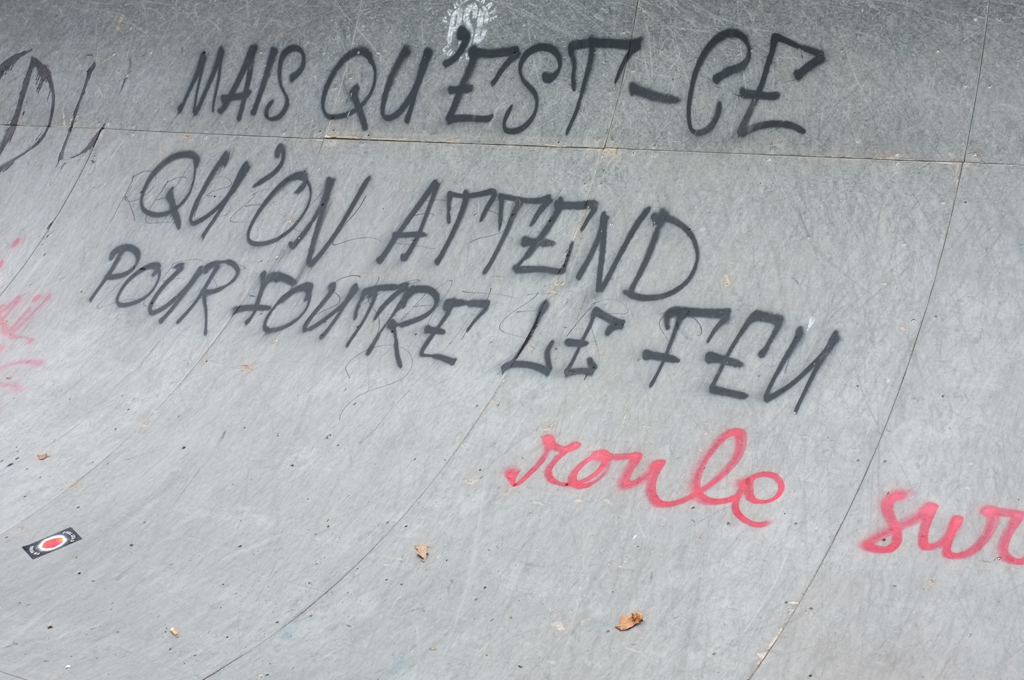 MAIS QU'EST-CE
QU'ON ATTEND
POUR FOUTRE LE FEU
roule sur